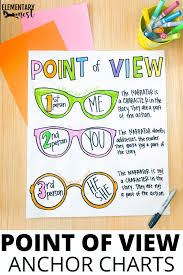 ELEMENTARY
nest
POINT OF VIEW
1st
person
ME
The NARRATOR
is a CHARACTER in
the story. They are
a part of the
action.
2nd
person
YOU
The NARRATOR directly
addresses the reader.
3rd
person
HE
SHE
The NARRATOR is not
a CHARACTER in the
story. They are not
a part of the
action.
POINT OF VIEW
ANCHOR CHARTS